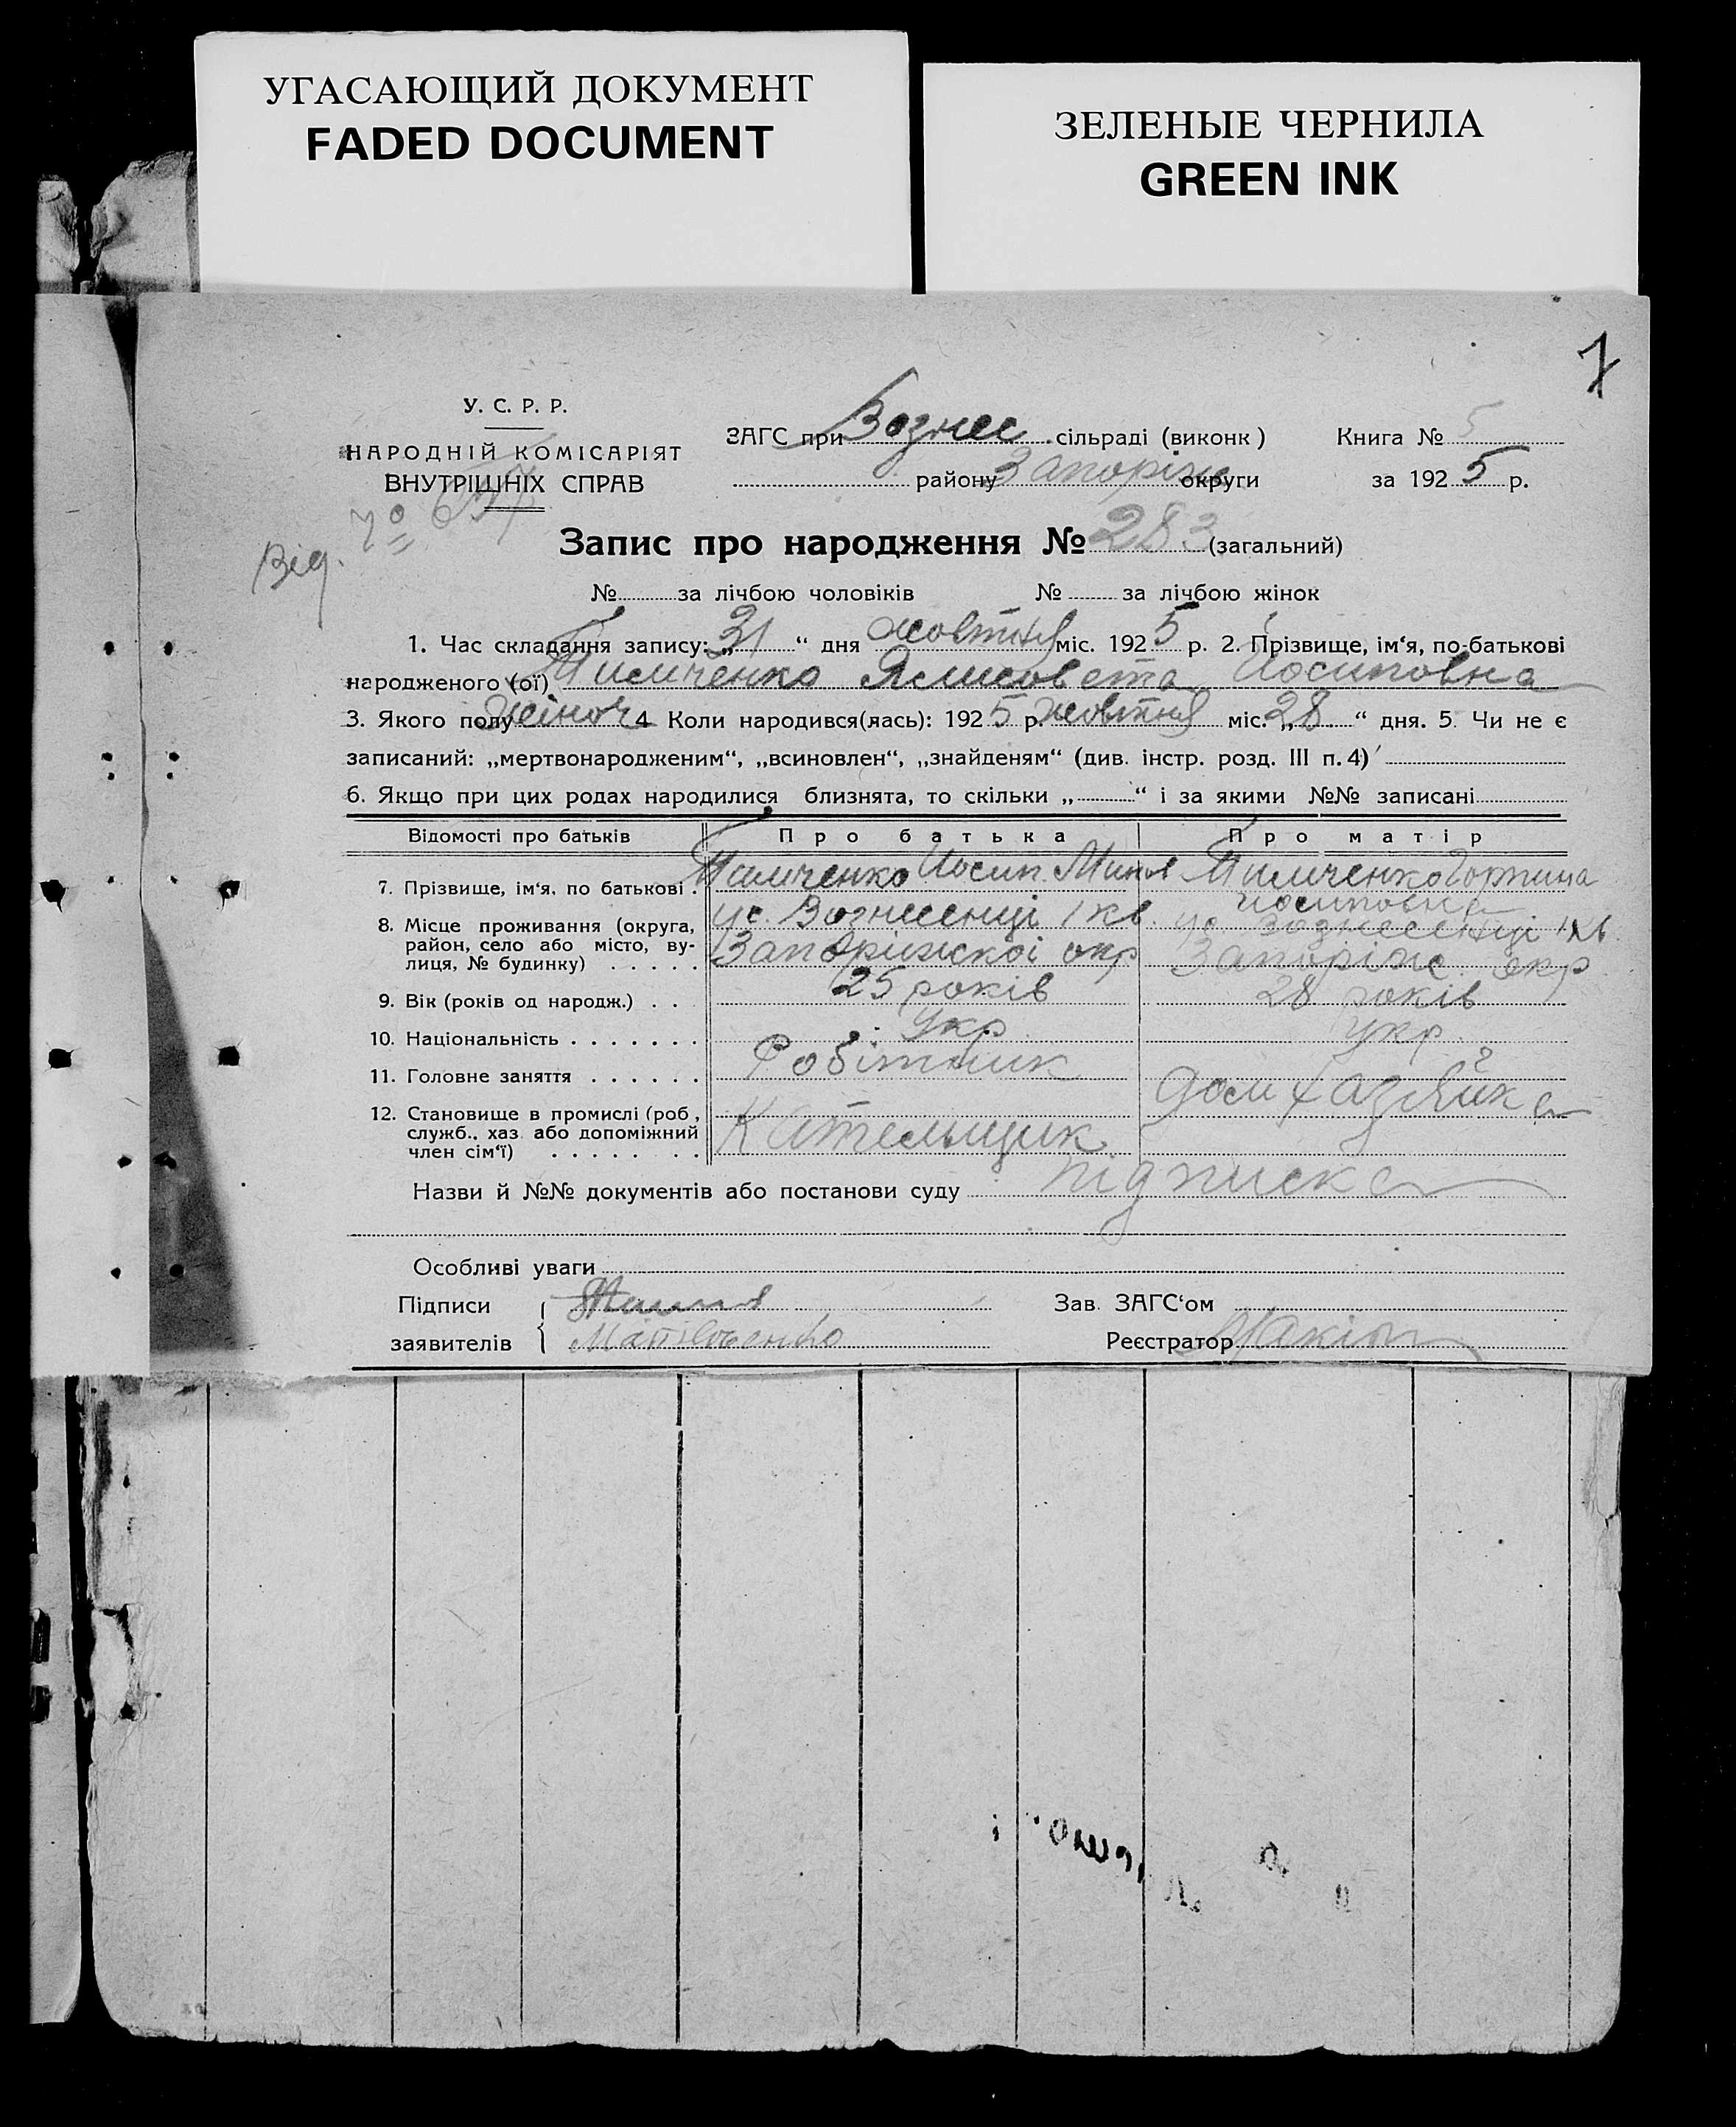 УГАСАЮЩИЙ ДОКУМЕНТ
FADED DOCUMENT
ЗЕЛЕНЫЕ ЧЕРНИЛА
GREEN INK
7
У. С. Р. Р.
НАРОДНІЙ КОМІСАРІЯТ
ВНУТРІШНІХ СПРАВ
ЗАГС при Вознес сільраді (виконк)
району Запоріж округи
Книга № 5
за 1925 р.
Від.
Запис про народження № 283 (загальний)
№ за лічбою чоловіків № за лічбою жінок
1. Час складання запису: „31“ дня жовтня міс. 1925 р. 2. Прізвище, ім‘я, по-батькові
народженого (ої) Тимченко Ялисовета Йосиповна
3. Якого полу жіноч 4 Коли народився(лась): 1925 р. жовтня міс. „28“ дня. 5. Чи не є
записаний: „мертвонародженим“, „всиновлен“, „знайденям“ (див. інстр. розд. III п. 4)
6. Якщо при цих родах народилися близнята, то скільки „ “ і за якими №№ записані
Відомості про батьків Про батька Про матір
7. Прізвище, ім‘я, по батькові Тимченко Йосип Тимченко Горпина
Йосиповна
8. Місце проживання (округа, ус. Вознесенці 1 кв. ус. Вознесенці 1 кв
район, село або місто, ву- Запоріжскоі окр Запоріж. окр
лиця, № будинку)
9. Вік (років од народж.) 25 років 28 років
10. Національність Укр Укр
11. Головне заняття Робітник Дом хазяйка
12. Становище в промислі (роб., Кательщик
служб., хаз. або допоміжний
член сім‘ї)
Назви й №№ документів або постанови суду підписка
Особливі уваги
Підписи
заявителів
Зав. ЗАГС‘ом
Реєстратор